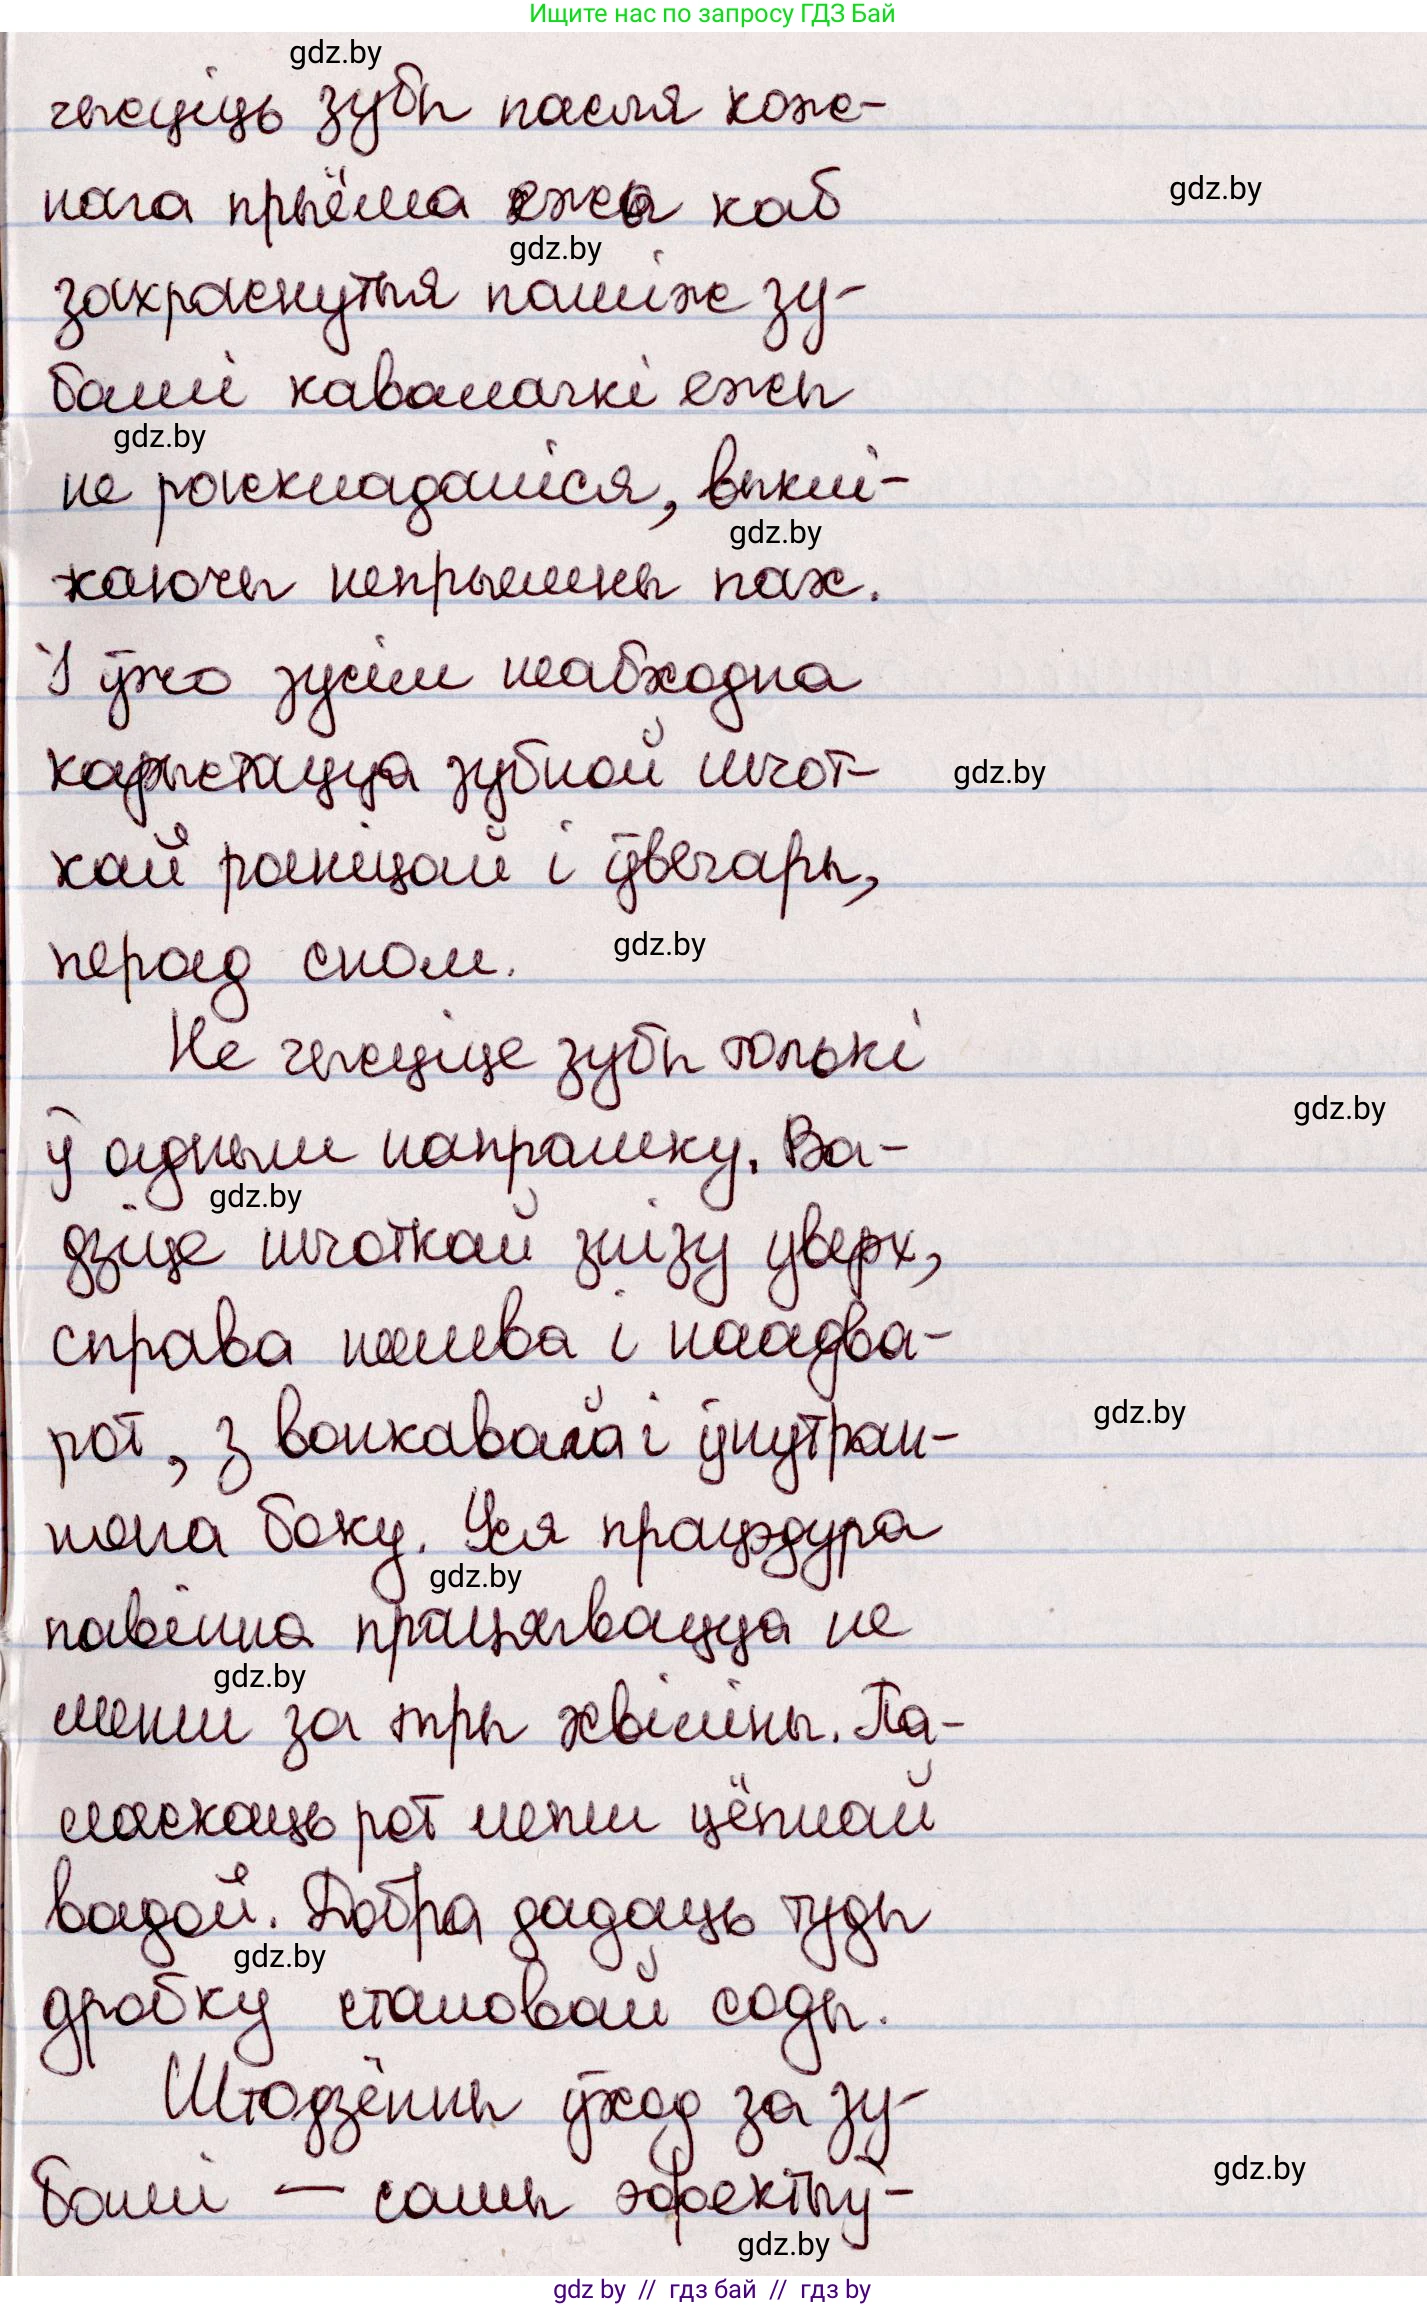 Ищите нас по запросу ГДЗ Бай
gdz.by
чысціць зубы пасля кож-
нага прыёма ежы каб
gdz.by
gdz.by
захраснутыя паміж зу-
бамі кавалачкі ежы
gdz.by
не раскладаліся, выклі-
gdz.by
каючы непрыемны пах.
І ўжо зусім неабходна
карыстацца зубной шчот-
gdz.by
кай раніцай і ўвечары,
перад сном.
gdz.by
Не чысціце зубы толькі
gdz.by
ў адным напрамку. Ва-
gdz.by
дзіце шчоткай знізу уверх,
справа налева і наадва-
рот, з вонкавага і ўнутран-
gdz.by
нага боку. Уся працэдура
gdz.by
павінна працягвацца не
gdz.by
менш за тры хвіліны. Па-
ласкаць рот лепш цёплай
вадой. Добра дадаць туды
gdz.by
дробку сталовай соды.
Штодзённы ўход за зу-
бамі — самы эфектыў-
gdz.by
gdz.by
gdz by // гдз бай // гдз by